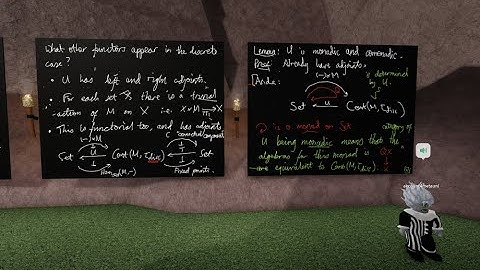 What other functors appear in the discrete
case?
• U has left and right adjoints.
• For each set X there is a trivial
action of M on X i.e. X × M → X
• This is functorial too, and has adjoints
(-)×M
connected components
Set U Cont(M, τdisc) Set
Homset(M,-)
Fixed points.
Lemma: U is monadic and comonadic.
Proof: Already have adjoints.
[Aside:
(-)×M
is determined
by U.
Set U Cont(M, τdisc)
is a monad on Set
category of
U being monadic means that the
algebras for this monad is
are equivalent to Cont(M, τdisc).